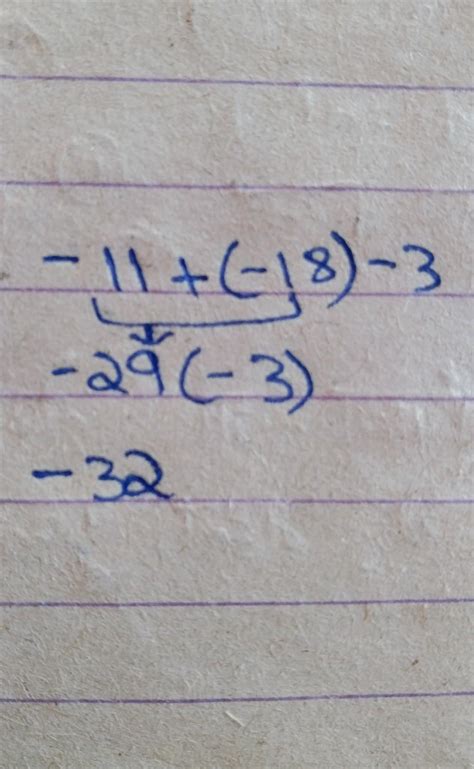 -11+(-18)-3
-29(-3)
-32